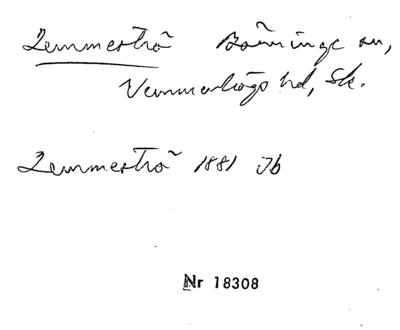 Lemmeströ Börringe sn,
Vemmenhögs hd, Sk.
Lemmeströ 1881 Jb
Nr 18308